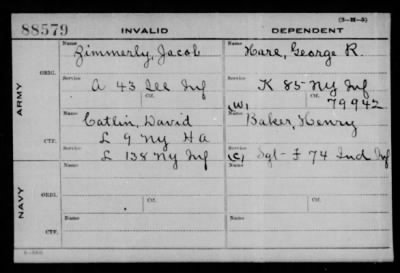 (3-M-5)
88579 INVALID DEPENDENT
ARMY
NAVY
ORIG.
Name Name
Zimmerly, Jacob Hare, George R.
Service Service
A 43 Ill Inf K 85 NY Inf
Ctf. Ctf.
(W) 79942
CTF.
Name Name
Catlin, David Baker, Henry
L 9 NY HA
L 138 NY Inf (C) Sgt - F 74 Ind Inf
ORIG.
Name Name
Service Service
Ctf. Ctf.
CTF.
Name Name